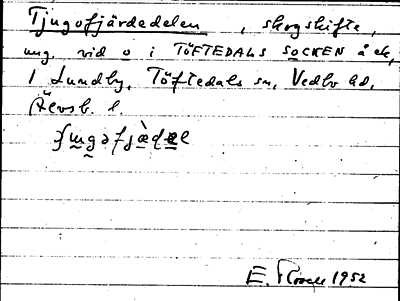 Tjugofjärdedelen, skogskifte,
ung. vid o i TÖFTEDALS SOCKEN å ek,
1 Lundby, Töftedals sn, Vedbo hd,
Älvsb. l.
E. 1952